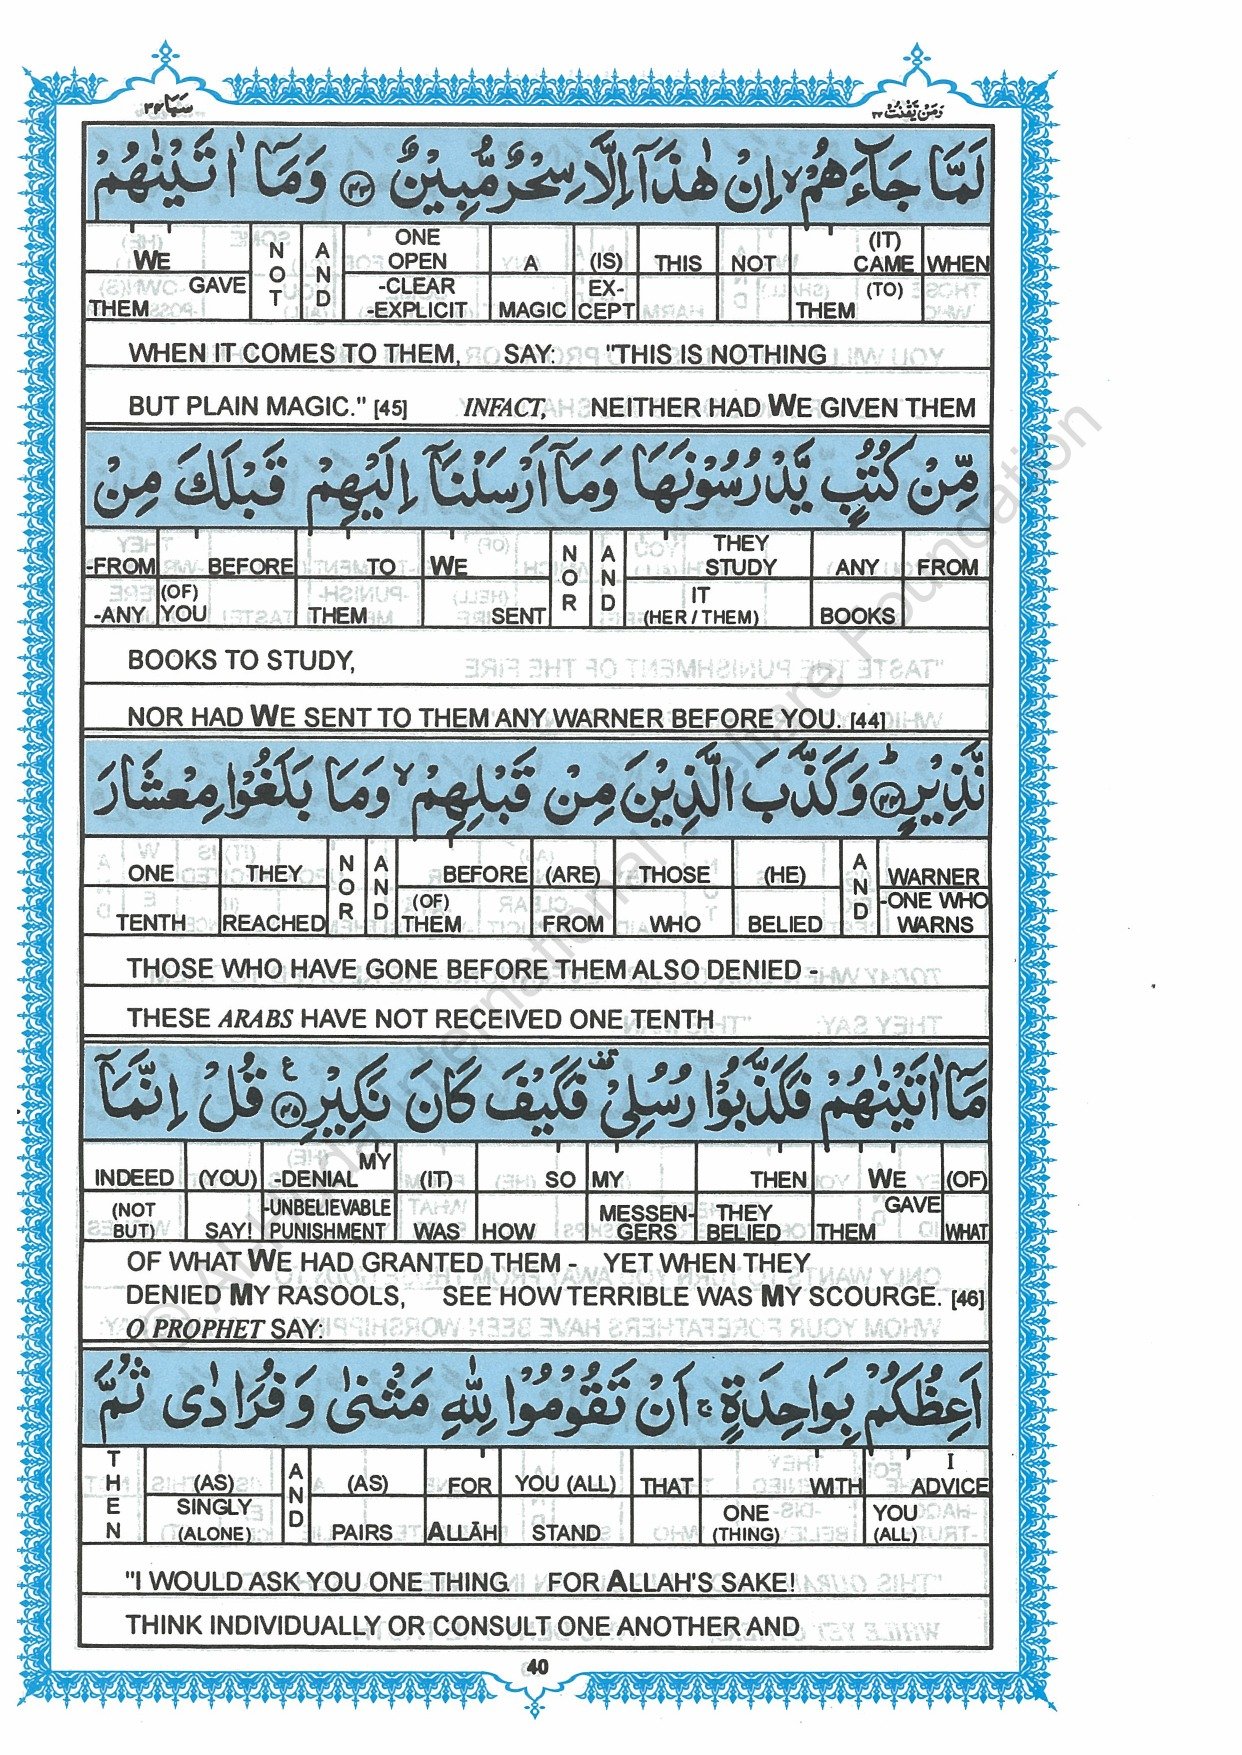 سَبَا ٣٤
وَمَنْ يَّقْنُتْ ٢٢
لَمَّا جَآءَهُمْ ۙ اِنْ هٰذَاۤ اِلَّا سِحْرٌ مُّبِيْنٌ ﴿٤٣﴾ وَمَاۤ اٰتَيْنٰهُمْ
WE NOT AND ONE OPEN A (IS) THIS NOT (IT) CAME WHEN
THEM GAVE -CLEAR -EXPLICIT MAGIC EX-CEPT THEM (TO)
WHEN IT COMES TO THEM, SAY: "THIS IS NOTHING
BUT PLAIN MAGIC." [45] INFACT, NEITHER HAD WE GIVEN THEM
مِّنْ كُتُبٍ يَّدْرُسُوْنَهَا وَمَاۤ اَرْسَلْنَاۤ اِلَيْهِمْ قَبْلَكَ مِنْ
-FROM BEFORE TO WE NOR AND THEY STUDY ANY FROM
-ANY (OF) YOU THEM SENT IT (HER / THEM) BOOKS
BOOKS TO STUDY,
NOR HAD WE SENT TO THEM ANY WARNER BEFORE YOU. [44]
نَّذِيْرٍ ﴿٤٤﴾ وَكَذَّبَ الَّذِيْنَ مِنْ قَبْلِهِمْ ۙ وَمَا بَلَغُوْا مِعْشَارَ
ONE THEY NOR AND BEFORE (ARE) THOSE (HE) AND WARNER
TENTH REACHED (OF) THEM FROM WHO BELIED -ONE WHO WARNS
THOSE WHO HAVE GONE BEFORE THEM ALSO DENIED -
THESE ARABS HAVE NOT RECEIVED ONE TENTH
مَاۤ اٰتَيْنٰهُمْ فَكَذَّبُوْا رُسُلِيْ ۫ فَكَيْفَ كَانَ نَكِيْرِ ﴿٤٥﴾ ع قُلْ اِنَّمَاۤ
INDEED (YOU) -DENIAL MY (IT) SO MY THEN WE (OF)
(NOT BUT) SAY! -UNBELIEVABLE PUNISHMENT WAS HOW MESSEN-GERS THEY BELIED THEM GAVE WHAT
OF WHAT WE HAD GRANTED THEM - YET WHEN THEY
DENIED MY RASOOLS, SEE HOW TERRIBLE WAS MY SCOURGE. [46]
O PROPHET SAY:
اَعِظُكُمْ بِوَاحِدَةٍ ۚ اَنْ تَقُوْمُوْا لِلّٰهِ مَثْنٰى وَفُرَادٰى ثُمَّ
THEN (AS) AND (AS) FOR YOU (ALL) THAT WITH I ADVICE
SINGLY (ALONE) PAIRS ALLĀH STAND ONE (THING) YOU (ALL)
"I WOULD ASK YOU ONE THING. FOR ALLAH'S SAKE!
THINK INDIVIDUALLY OR CONSULT ONE ANOTHER AND
40